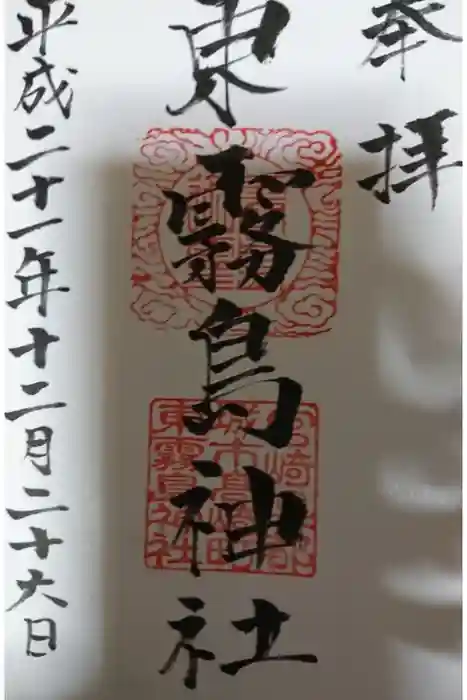 奉拝
東霧島神社
平成二十一年十二月二十六日
宮崎
城市高崎町
東霧島神社